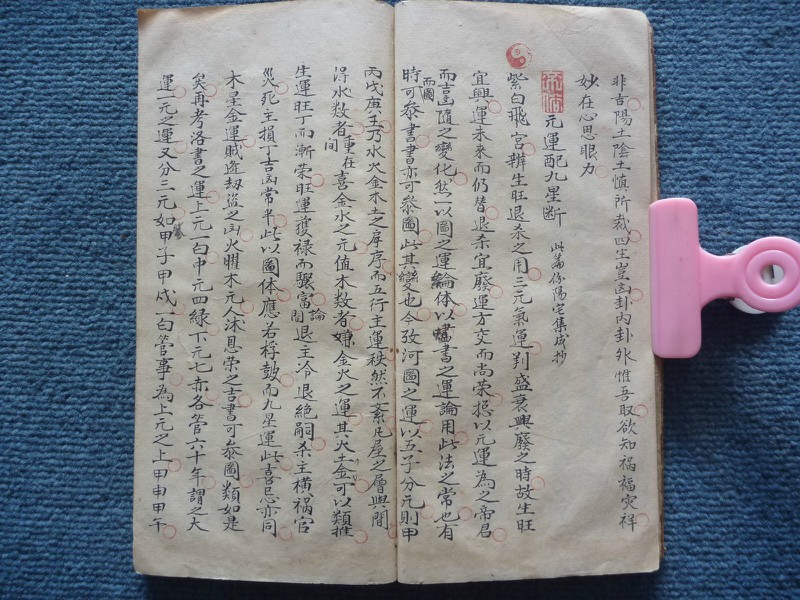 非吉陽土陰土慎所裁四生豈凶卦内卦外惟吾取欲知禍福灾祥
妙在心思眼力
元運配九星断 此篇係陽宅集成抄
紫白飛宮辨生旺退杀之用三元氣運判盛衰興廢之時故生旺
宜興運未來而仍替退杀宜廢運方交而尚荣捴以元運為之帝君
而吉凶隨之變化然一以圖之運論体以書之運論用此法之常也有
時而圖可参書書亦可参圖此其變也今攷河圖之運以五子分元則甲
丙戊庚壬乃水火金木土之序而五行主運秩然不紊凡屋之層與間
得水数者重在間喜金水之元值木数者嫌金火之運其火土金可以類推
生運旺丁而漸荣旺運獲禄而驟富論間退主冷退絶嗣杀主橫禍官
災死主損丁吉凶常半此以圖体應若桴鼓而九星運此喜忌亦同
木星金運贼逢劫盗之凶火曜木元人沐恩荣之吉書可参圖類如是
矣再考洛書之運上元一白中元四緑下元七赤各管六十年謂之大
運一元之運又分三元如甲子甲戍一白管事為上元之上甲申甲午